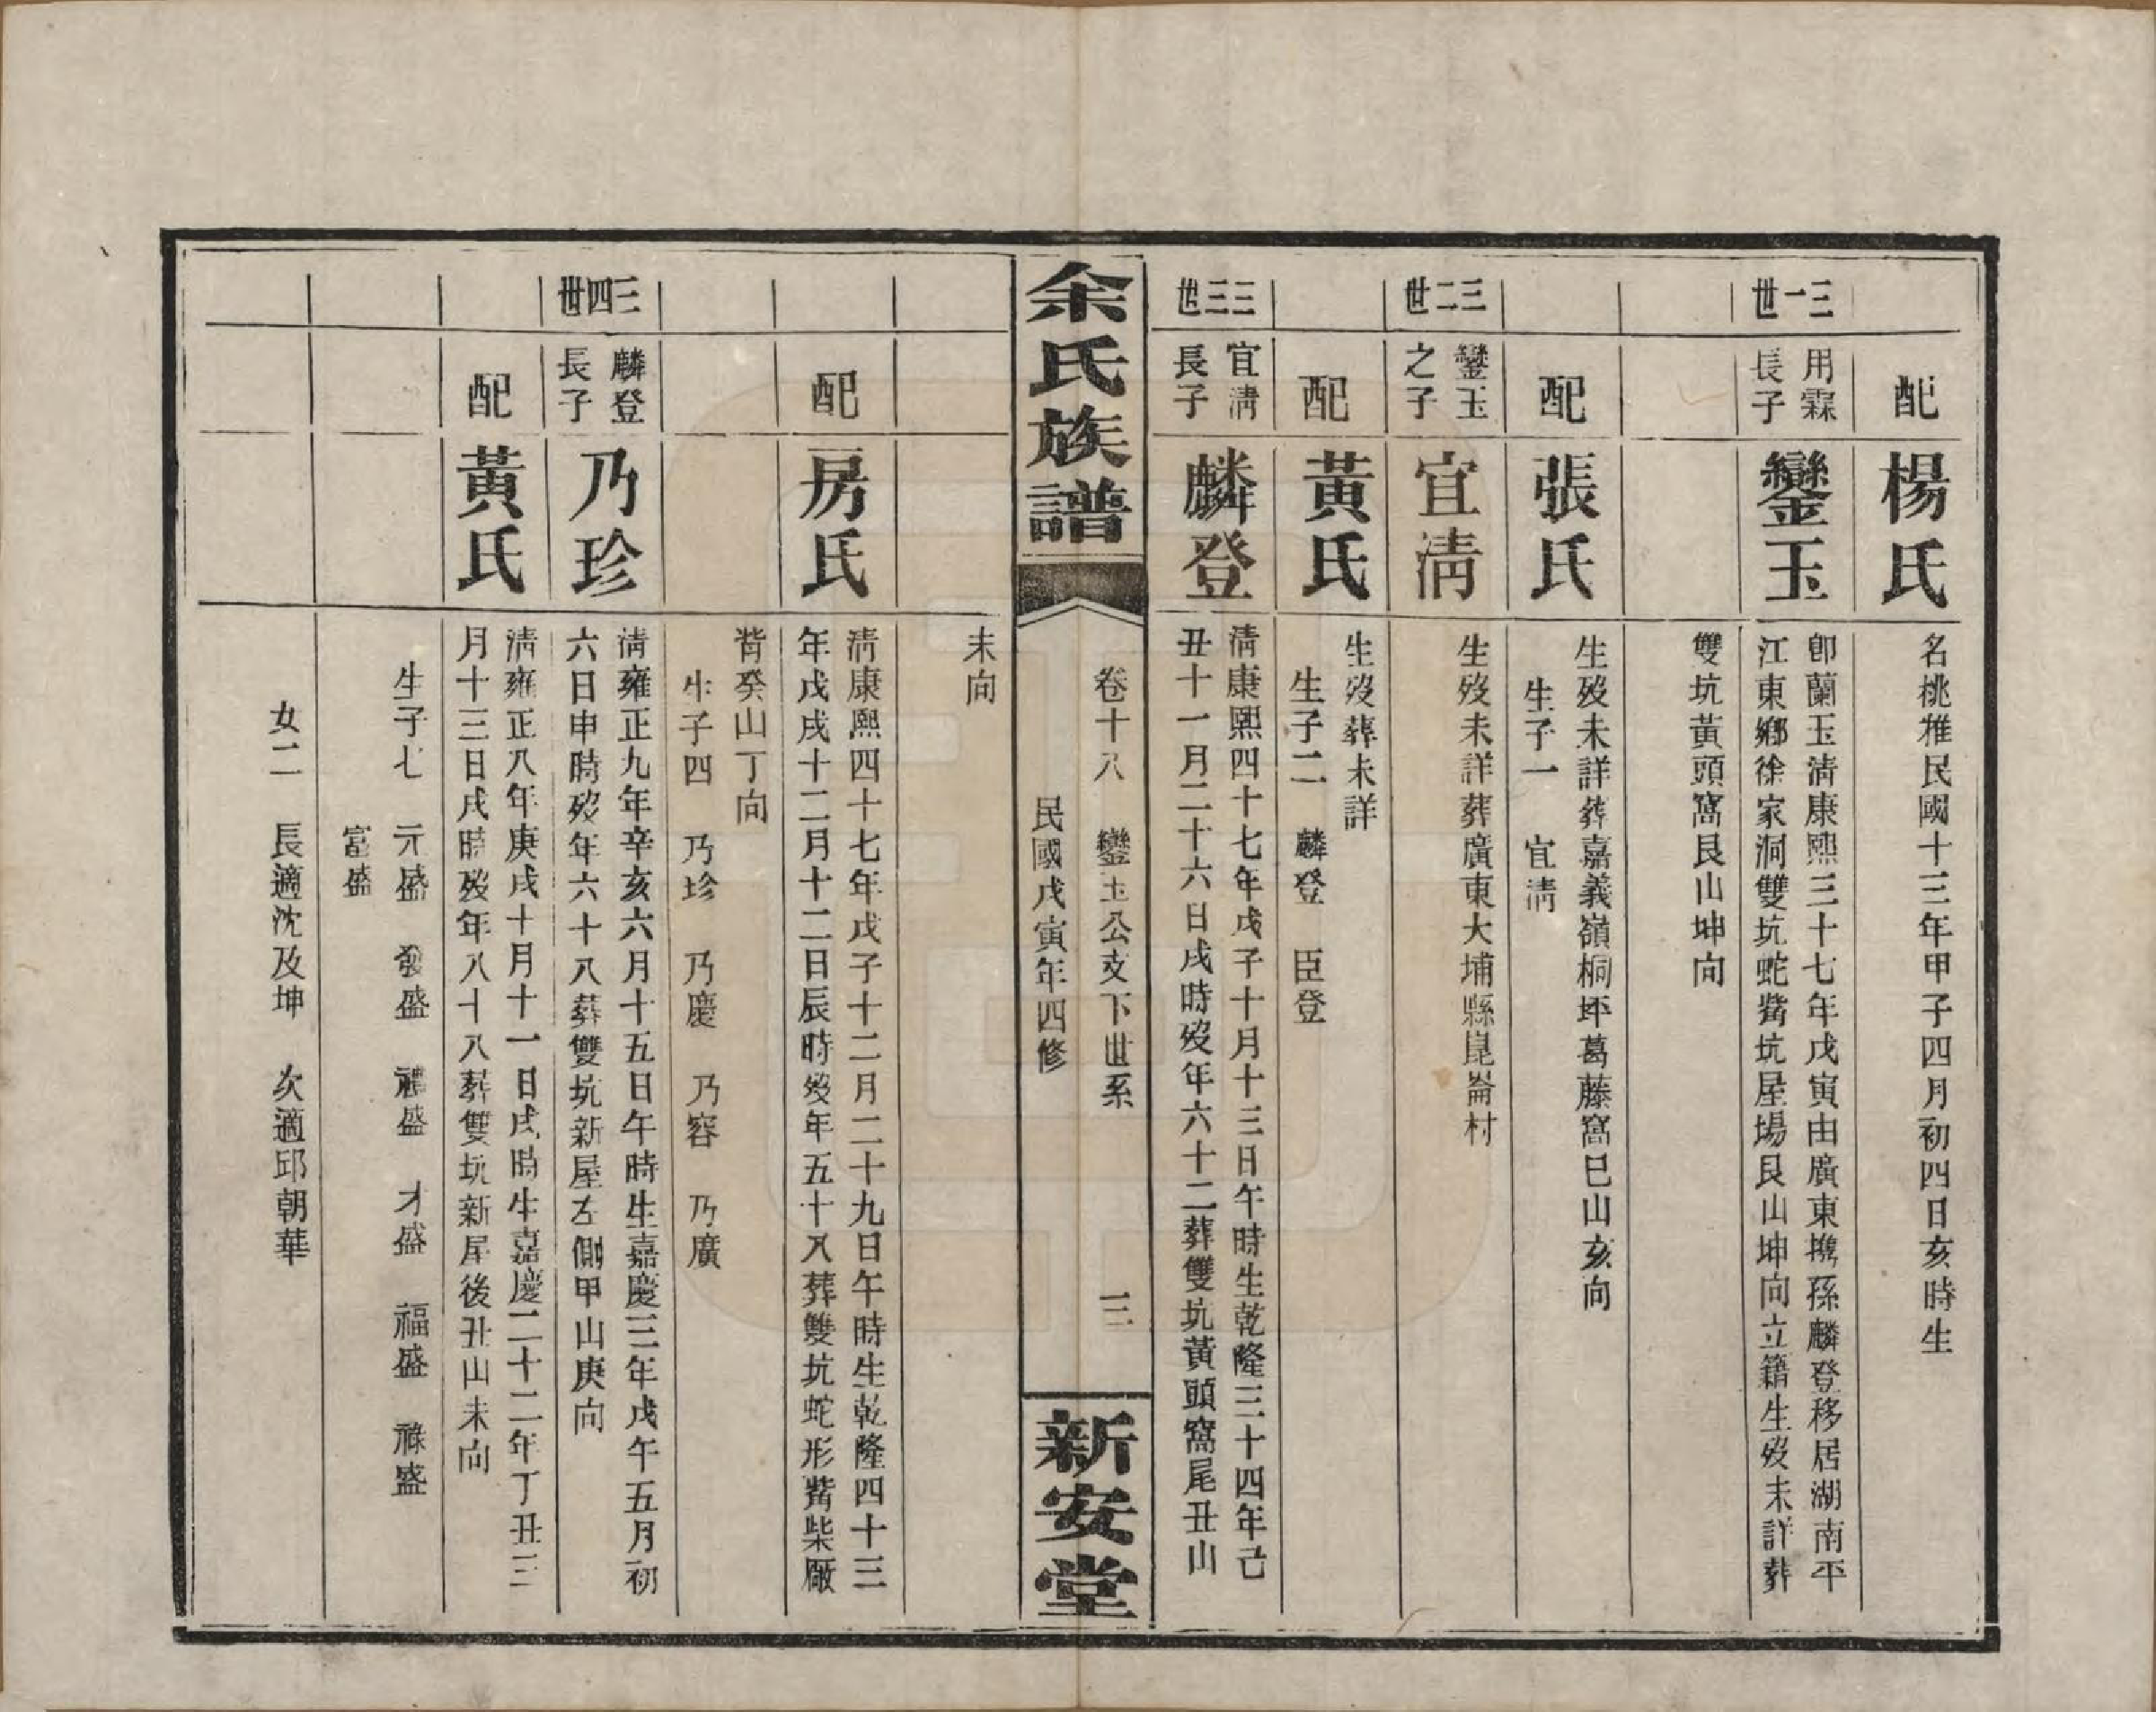 配
楊氏
名桃雅民國十三年甲子四月初四日亥時生
三一世
用霖
長子
鑾玉
卽蘭玉清康熙三十七年戊寅由廣東攜孫麟登移居湖南平
江東鄉徐家洞雙坑蛇觜坑屋場艮山坤向立籍生歿未詳葬
雙坑黃頭窩艮山坤向
配
張氏
生歿未詳葬嘉義嶺桐坪葛藤窩巳山亥向
生子一　宜淸
三二世
鑾玉
之子
宜淸
生歿未詳葬廣東大埔縣崑崙村
配
黃氏
生歿葬未詳
生子二　麟登　臣登
三三世
宜淸
長子
麟登
淸康熙四十七年戊子十月十三日午時生乾隆三十四年己
丑十一月二十六日戌時歿年六十二葬雙坑黃頭窩尾丑山
余氏族譜
卷十八　鑾玉公支下世系　三
民國戊寅年四修
新安堂
未向
配
房氏
淸康熙四十七年戊子十二月二十九日午時生乾隆四十三
年戊戌十二月十二日辰時歿年五十八葬雙坑蛇形觜柴厰
背癸山丁向
生子四　乃珍　乃慶　乃容　乃廣
三四世
麟登
長子
乃珍
淸雍正九年辛亥六月十五日午時生嘉慶三年戊午五月初
六日申時歿年六十八葬雙坑新屋左側甲山庚向
配
黃氏
淸雍正八年庚戌十月十一日戌時生嘉慶二十二年丁丑三
月十三日戌時歿年八十八葬雙坑新屋後丑山未向
生子七　元盛　發盛　禮盛　才盛　福盛　祿盛
富盛
女二　長適沈及坤　次適邱朝華